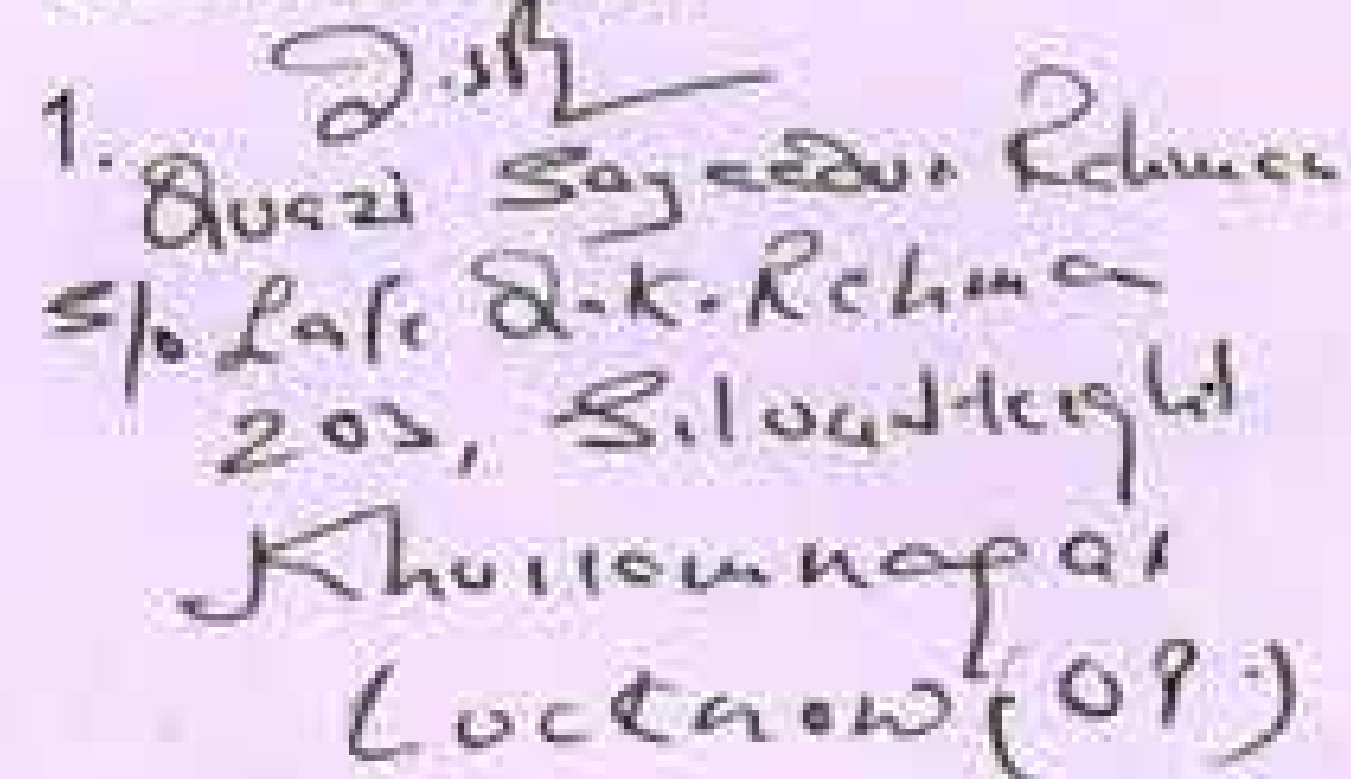 1.
Quazi Sayeedur Rehman
S/o Late Q.K. Rehman
203, Silver Height
Khurramnagar
Lucknow (UP.)